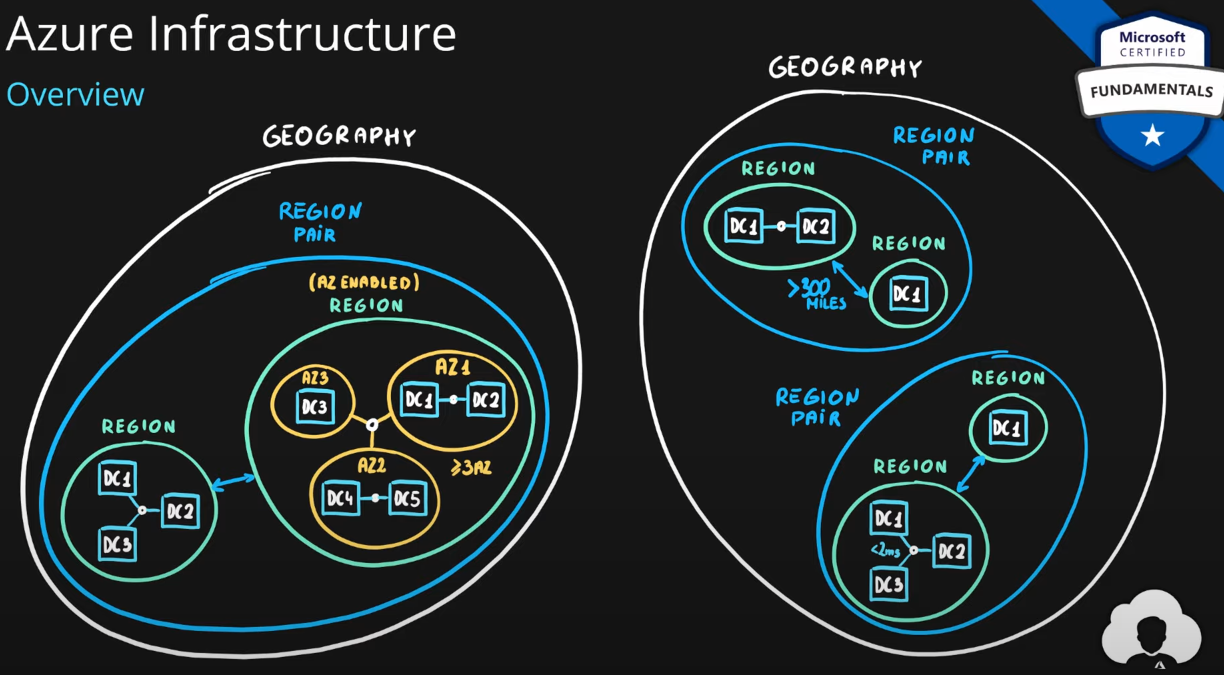 Azure Infrastructure
Overview
Microsoft
CERTIFIED
FUNDAMENTALS
GEOGRAPHY
REGION
PAIR
(AZ ENABLED)
REGION
AZ3
DC3
AZ1
DC1
DC2
AZ2
DC4
DC5
≥3AZ
REGION
DC1
DC2
DC3
GEOGRAPHY
REGION
PAIR
REGION
DC1
DC2
REGION
DC1
>300
MILES
REGION
PAIR
REGION
DC1
REGION
DC1
<2ms
DC2
DC3